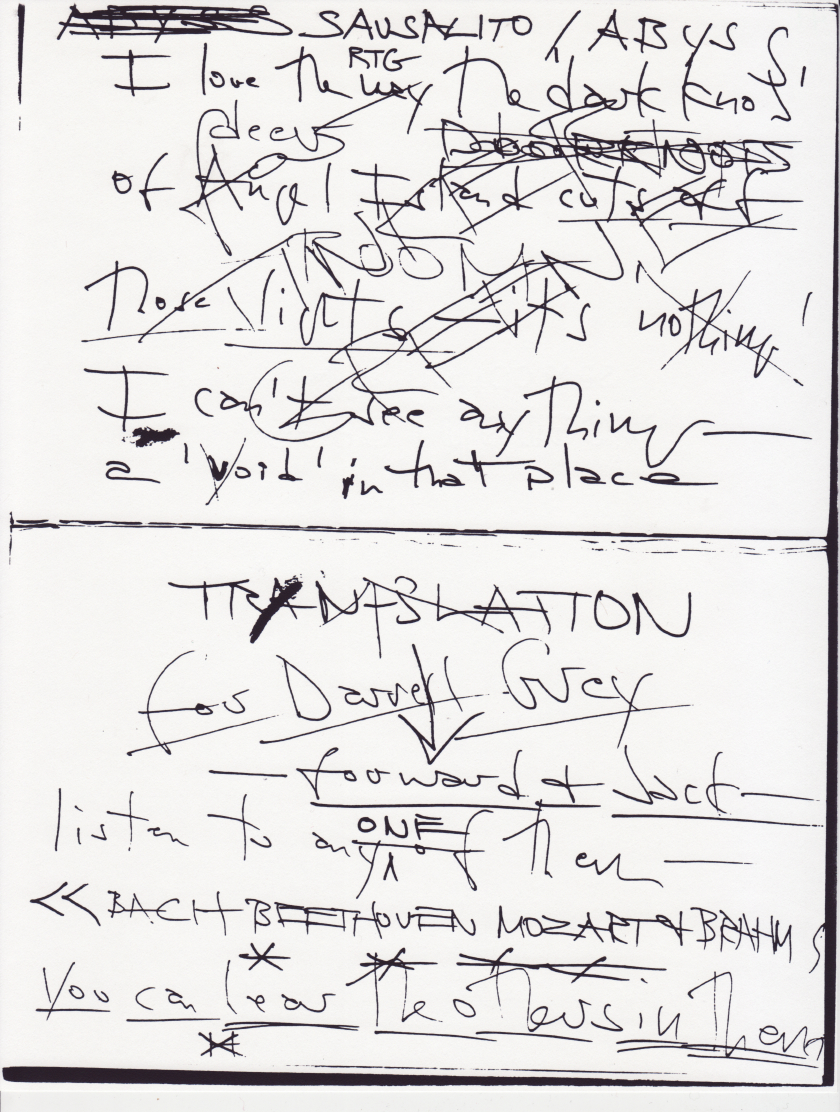 SAUSALITO / ABYSS
RTG
I love the way the dark knot
of Angel Island cuts off
those lights — it's 'nothing'
I can't see anything —
a 'void' in that place
TRANSLATION
for Darrell Grey
— forward & back —
ONE
listen to any of them —
<< BACH BEETHOVEN MOZART & BRAHMS
you can hear the others in them